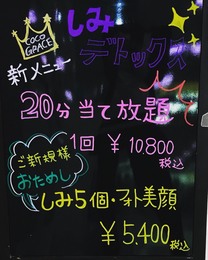 COCO
GRACE
しみ
デトックス
新メニュー
20分当て放題
1回 ¥10800
税込
ご新規様
おためし
しみ5個・フォト美顔
¥5,400税込